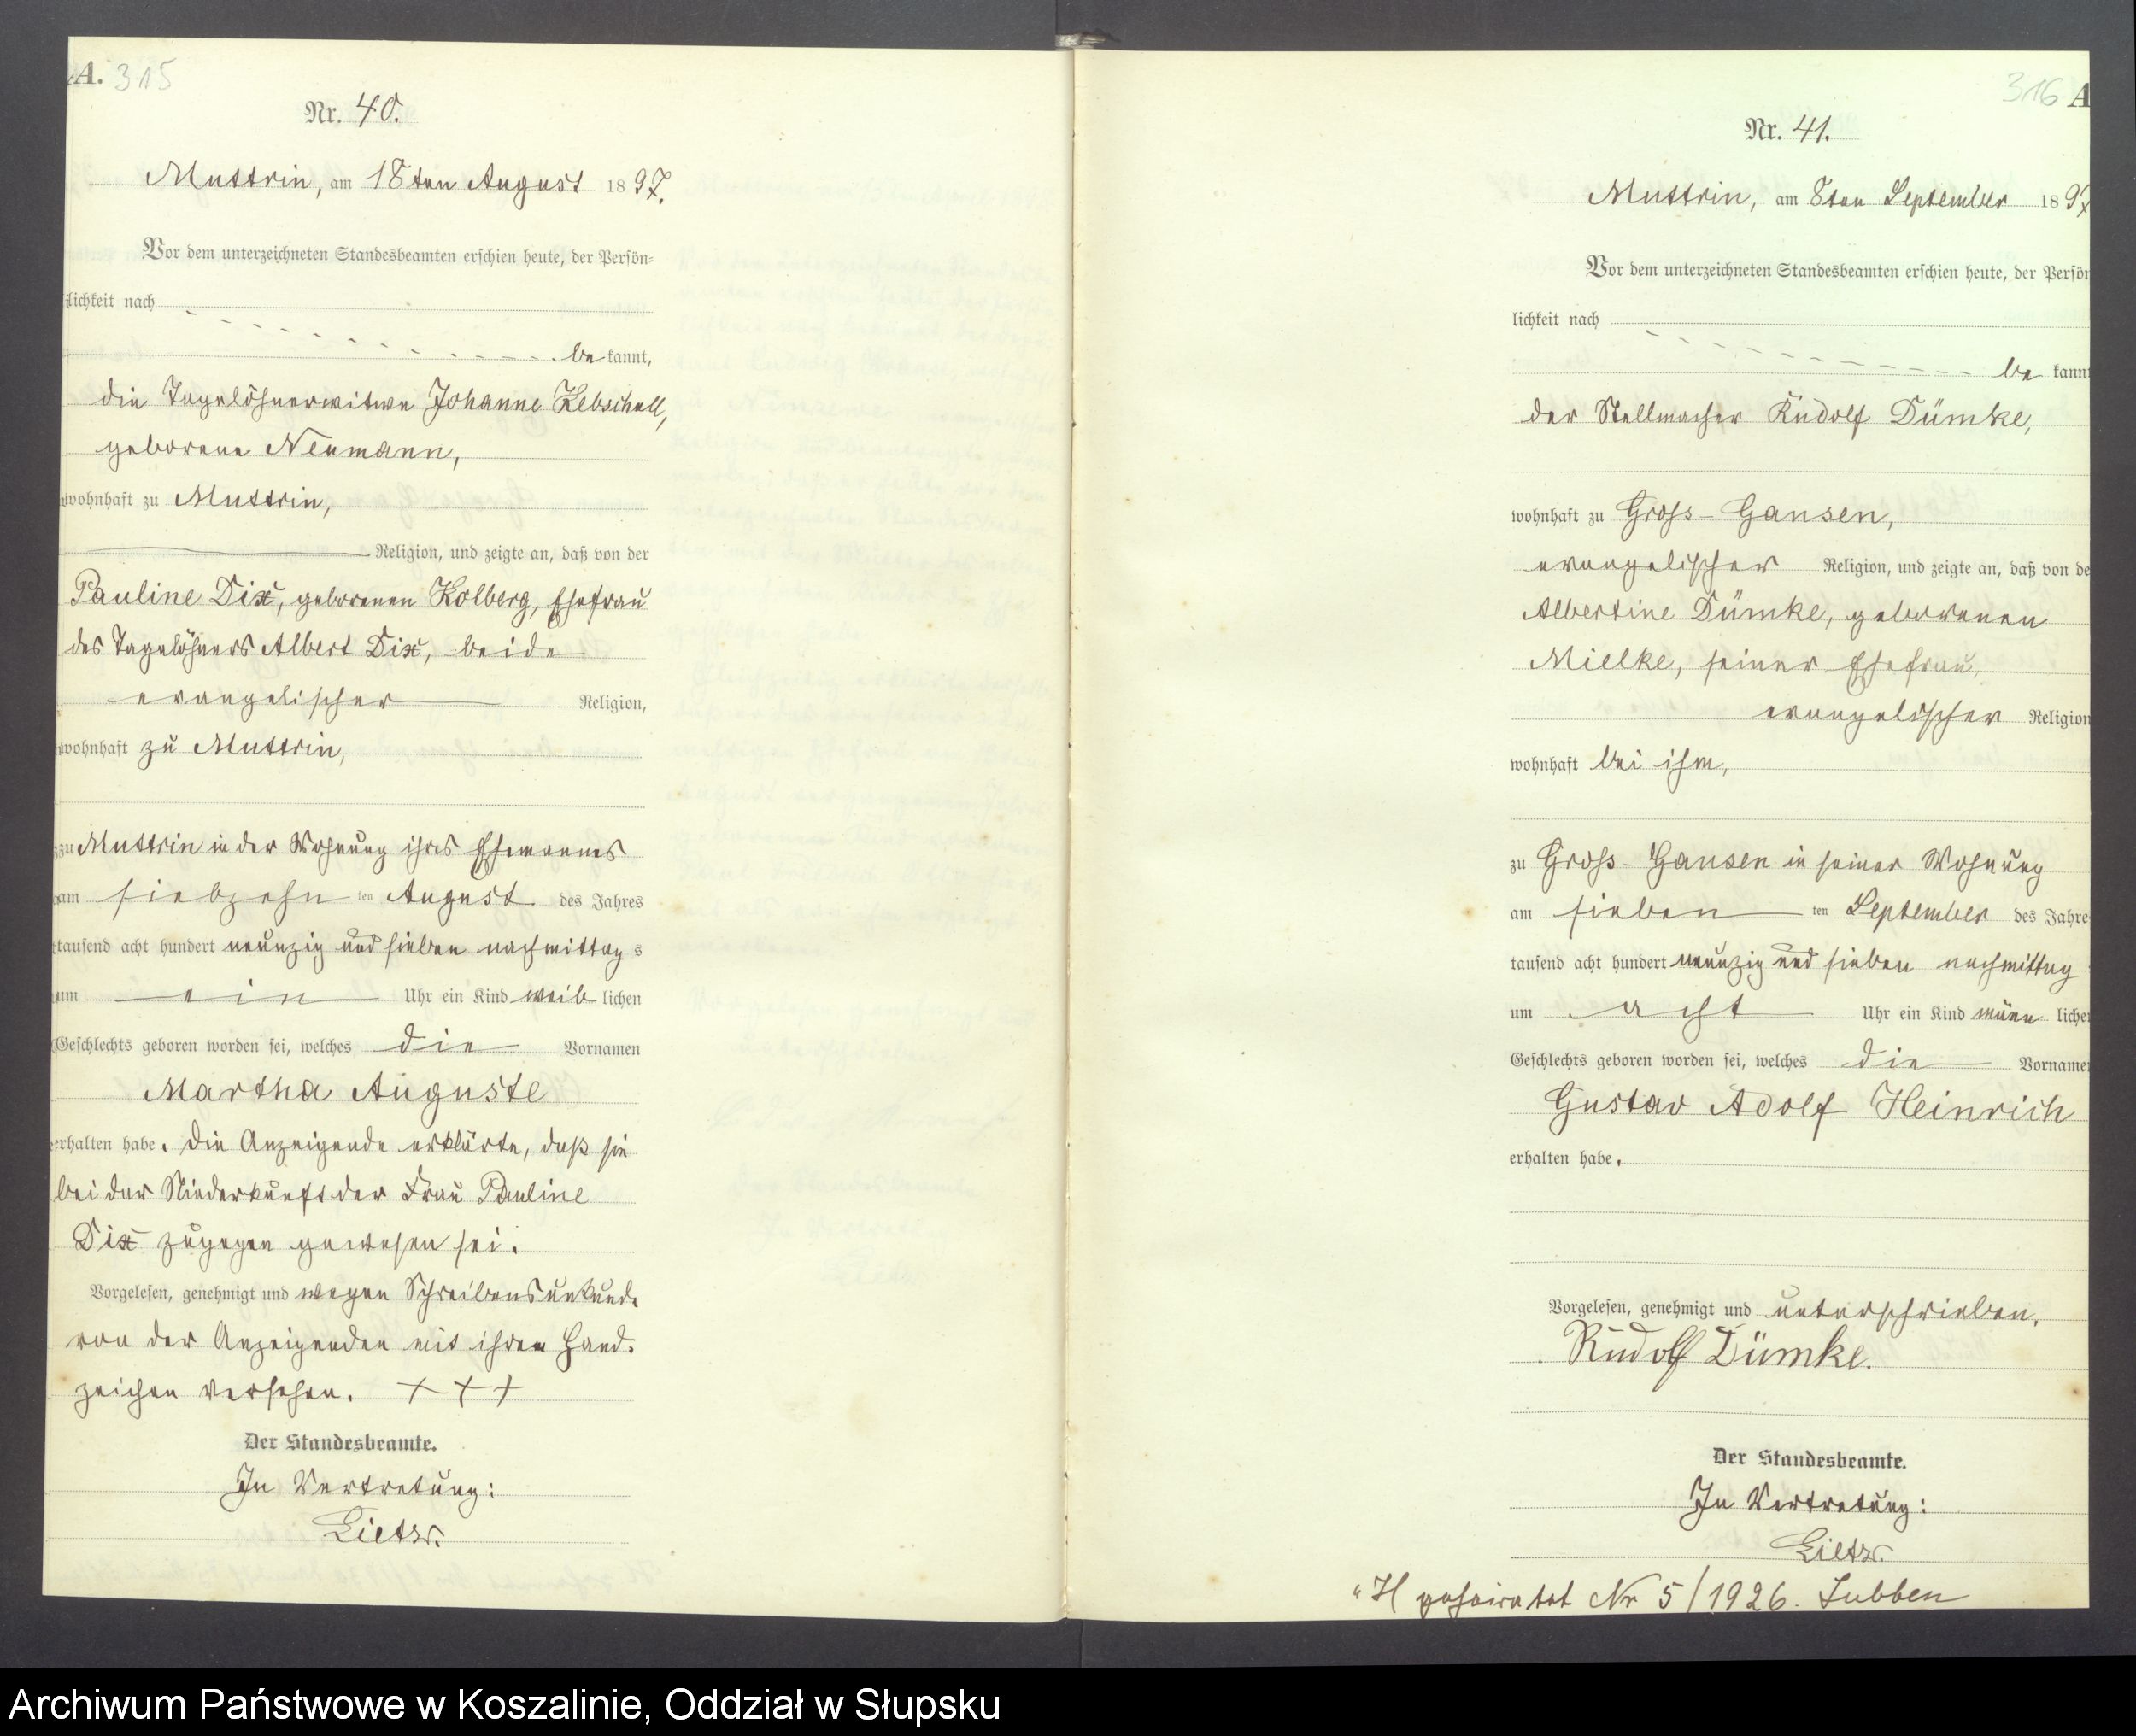 A. 315
Nr. 40.
Muttrin, am 18ten August 1897.
Vor dem unterzeichneten Standesbeamten erschien heute, der Persön=
lichkeit nach
bekannt,
die Tagelöhnerwitwe Johanne Kebschull,
geborene Neumann,
wohnhaft zu Muttrin,
Religion, und zeigte an, daß von der
Pauline Dix, geborenen Kolberg, Ehefrau
des Tagelöhners Albert Dix, beide
evangelischer Religion,
wohnhaft zu Muttrin,
zu Muttrin in der Wohnung ihres Ehemannes
am siebzehnten August des Jahres
tausend acht hundert neunzig und sieben nachmittags
um ein Uhr ein Kind weiblichen
Geschlechts geboren worden sei, welches die Vornamen
Martha Auguste
erhalten habe. Die Anzeigende erklärte, daß sie
bei der Niederkunft der Frau Pauline
Dix zugegen gewesen sei.
Vorgelesen, genehmigt und wegen Schreibensunkunde
von der Anzeigenden mit ihrem Hand=
zeichen versehen. + + +
Der Standesbeamte.
In Vertretung:
Lietz.
316 A
Nr. 41.
Muttrin, am 8ten September 1897
Vor dem unterzeichneten Standesbeamten erschien heute, der Persön
lichkeit nach
bekannt
der Stellmacher Rudolf Dümke,
wohnhaft zu Gross-Gansen,
evangelischer Religion, und zeigte an, daß von de
Albertine Dümke, geborenen
Mielke, seiner Ehefrau,
evangelischer Religion
wohnhaft bei ihm,
zu Gross-Gansen in seiner Wohnung
am siebenten September des Jahre
tausend acht hundert neunzig und sieben nachmittag
um acht Uhr ein Kind männliche
Geschlechts geboren worden sei, welches die Vorname
Gustav Adolf Heinrich
erhalten habe.
Vorgelesen, genehmigt und unterschrieben.
Rudolf Dümke.
Der Standesbeamte.
In Vertretung:
Lietz.
"H geheiratet Nr 5/1926. Lubben
Archiwum Państwowe w Koszalinie, Oddział w Słupsku